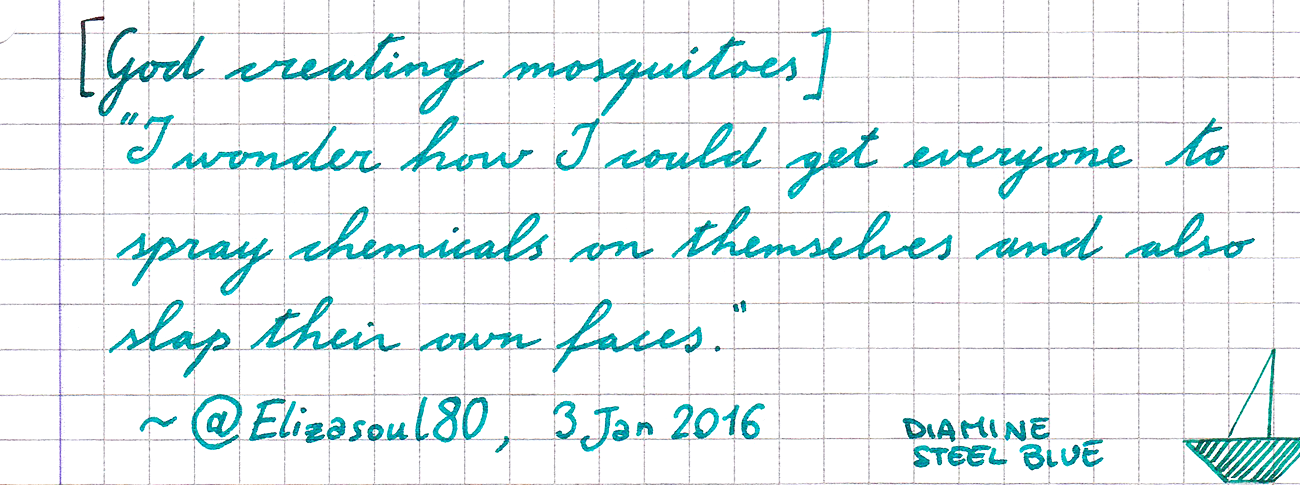 [God creating mosquitoes]
"I wonder how I could get everyone to
spray chemicals on themselves and also
slap their own faces."
~ @Elizasoul80, 3 Jan 2016
DIAMINE
STEEL BLUE